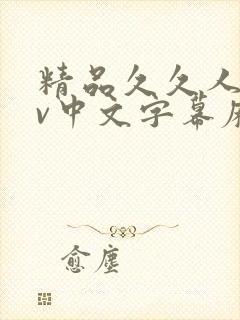 精品久久人
v中文字幕
愈尘